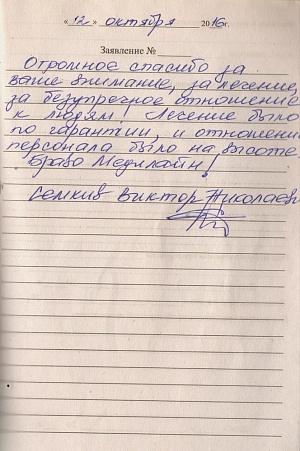 « 12 » октября 2016 г.
Заявление №
Огромное спасибо за
ваше внимание, за лечение,
за безупречное отношение
к людям! Лечение было
по гарантии, и отношение
персонала было на высоте
Браво Медлайн!
Семкив Виктор Николаев